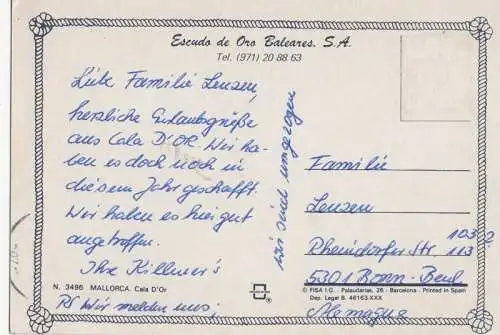 Escudo de Oro Baleares. S.A.
Tel. (971) 20 88 63
Liebe Familie Lenzen,
herzliche Urlaubsgrüße
aus Cala D'OR. Wir ha-
ben es doch noch in
diesem Jahr geschafft.
Wir haben es hier gut
angetroffen.
Ihre Killmer's
N. 3496 MALLORCA. Cala D'Or
PS Wir melden uns,
wir sind umgezogen
Familie
Lenzen
Rheindorfer Str. 113
103
5301 Bonn-Beul
© FISA I.G. - Palaudarias, 26 - Barcelona - Printed in Spain
Dep. Legal B. 46163-XXX
Alemagna